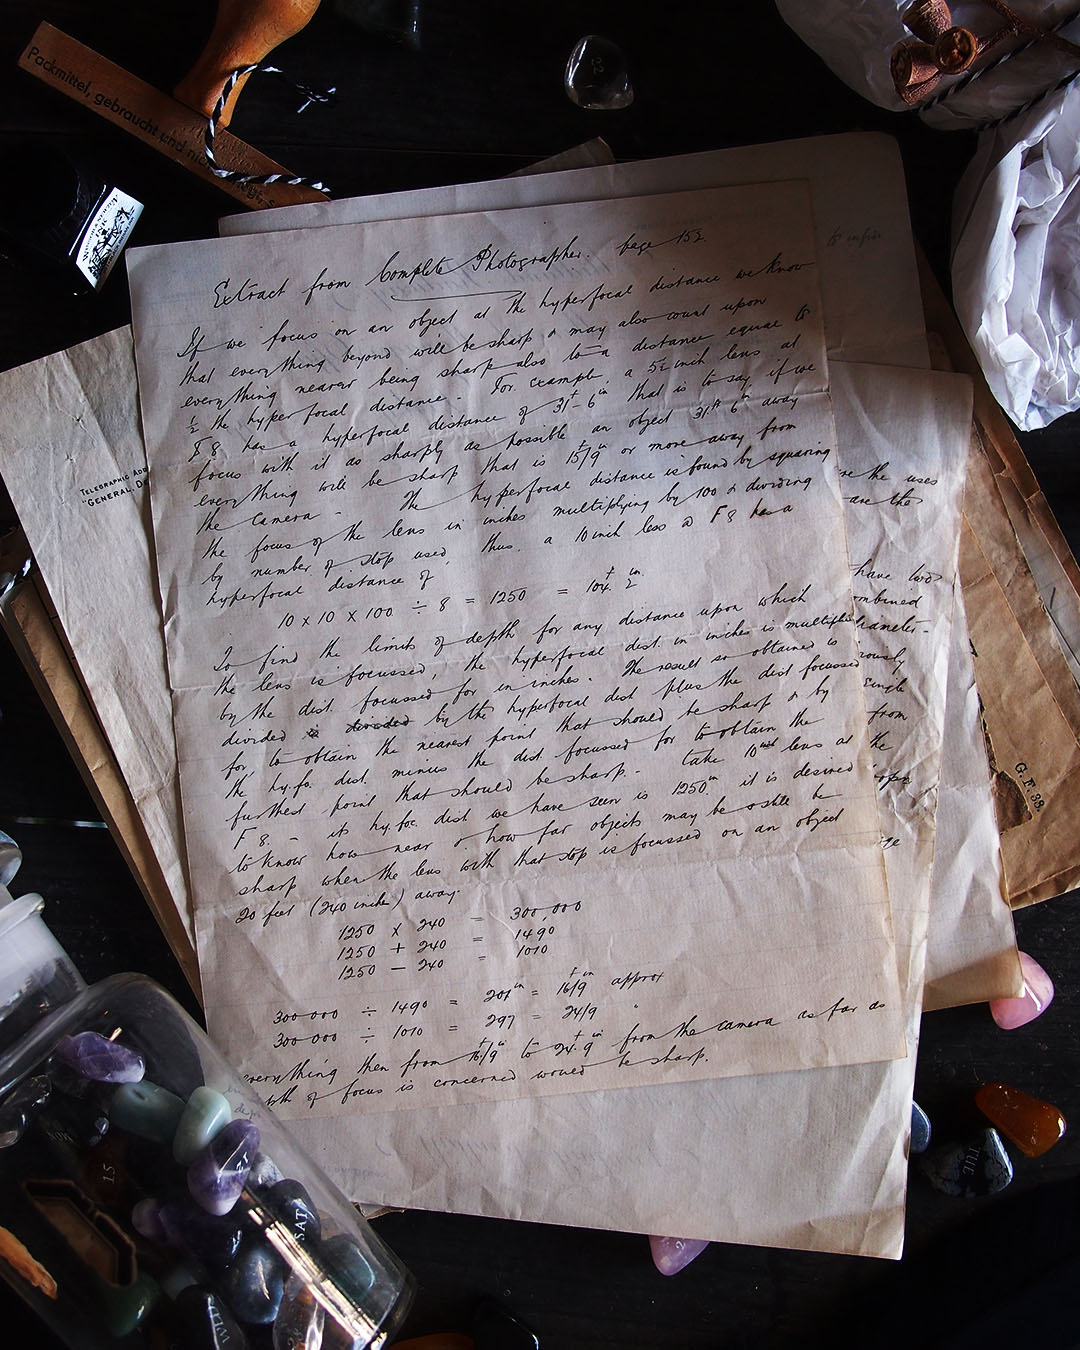 Packmittel, gebraucht und nic
Extract from Complete Photographer. page 152.
If we focus on an object at the hyperfocal distance we know
that everything beyond will be sharp & may also count upon
everything nearer being sharp also to a distance equal to
½ the hyperfocal distance. For example, a 5½ inch lens at
F 8 has a hyperfocal distance of 31ft–6in that is to say if we
focus with it as sharply as possible an object 31ft 6in away
everything will be sharp that is 15ft/9in or more away from
the camera – The hyperfocal distance is found by squaring
the focus of the lens in inches multiplying by 100 & dividing
by number of stop used, thus, a 10 inch less @ F 8 has a
hyperfocal distance of
10 x 10 x 100 ÷ 8 = 1250 = 104ft. 2in
To find the limits of depth for any distance upon which
the lens is focussed, the hyperfocal dist. in inches is multiplied
by the dist. focussed for in inches. The result so obtained is
divided is divided by the hyperfocal dist plus the dist focussed
for to obtain the nearest point that should be sharp & by
the hy.fo. dist. minus the dist. focussed for to obtain the
furthest point that should be sharp. – take 10 inch lens at the
F 8. – its hy.foc. dist we have seen is 1250in it is desired
to know how near & how far objects may be & still be
sharp when the lens with that stop is focussed on an object
20 feet (240 inches) away.
1250 x 240 = 300,000
1250 + 240 = 1490
1250 – 240 = 1010
300000 ÷ 1490 = 201in = 16ft/9in approx
300000 ÷ 1010 = 297 = 24/9 "
everything then from 16ft/9in to 24ft. 9in from the camera as far as
of focus is concerned would be sharp.
to infin
TELEGRAPHIC ADD
"GENERAL, DE
the uses
are the
have two
ombined
diameter-
iously
single
from
G. F. 38.
15
SAT
TUE